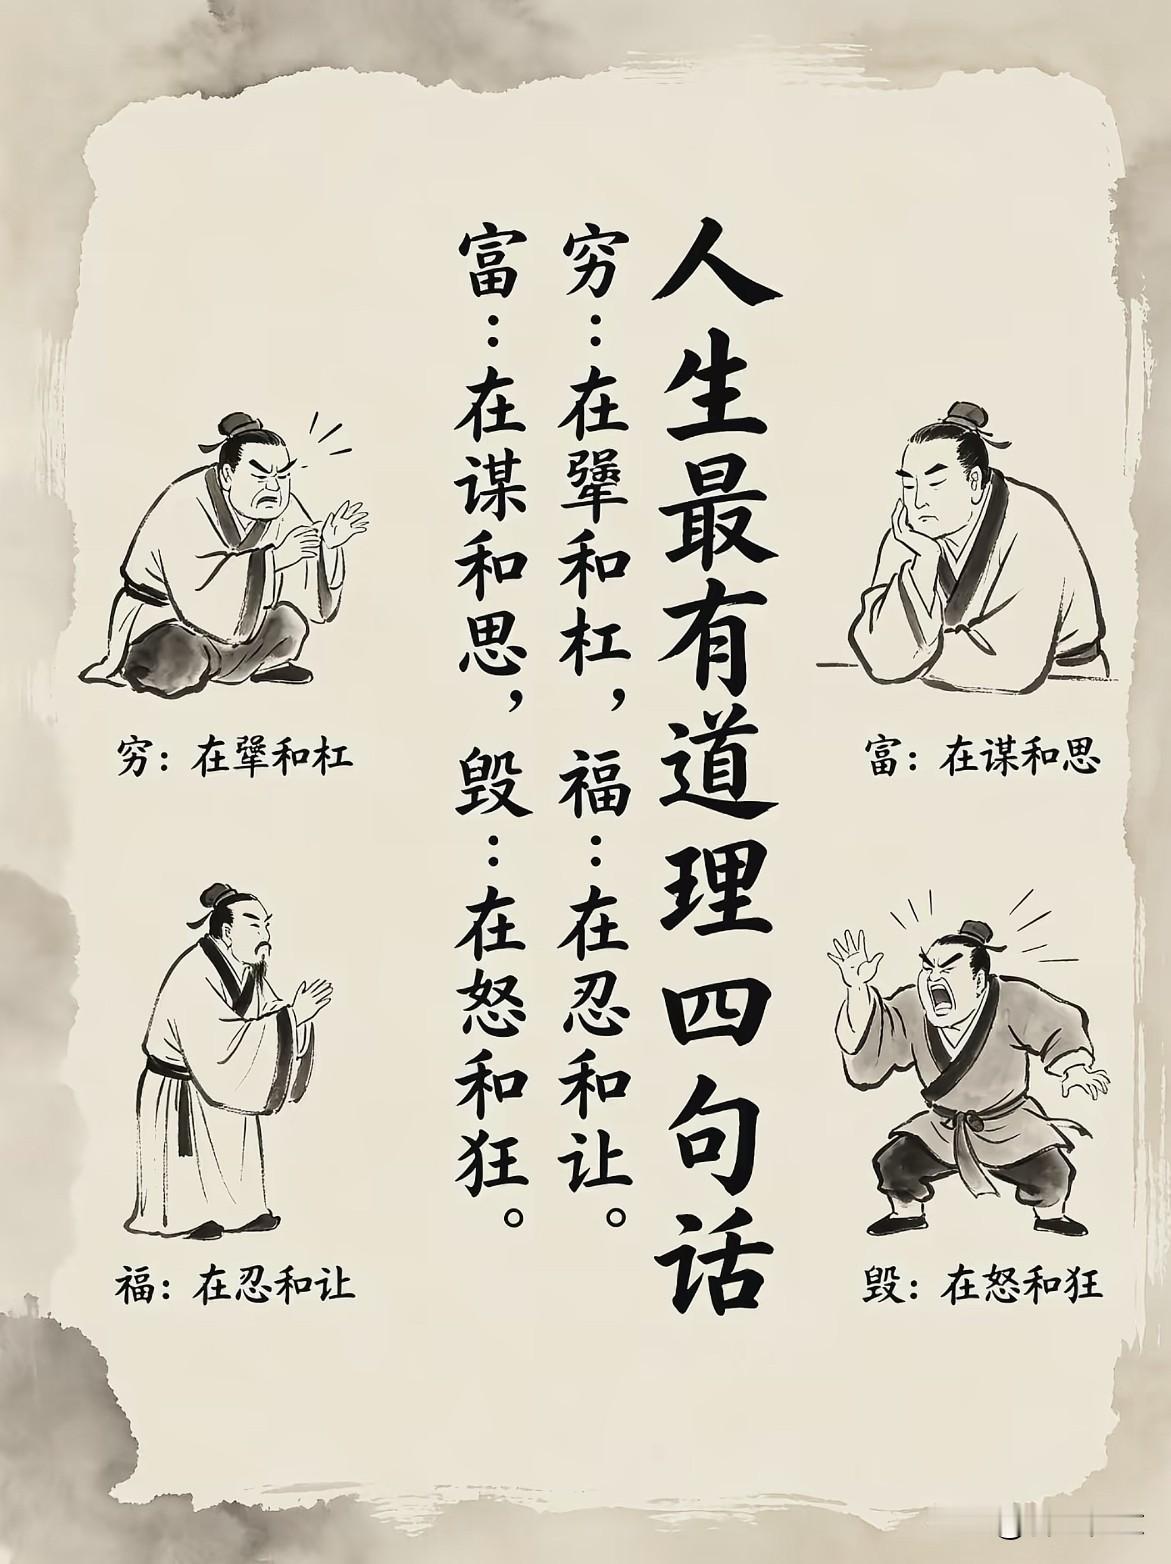 人生最有道理四句话
穷：在犟和杠，福：在忍和让。
富：在谋和思，毁：在怒和狂。
穷：在犟和杠
富：在谋和思
福：在忍和让
毁：在怒和狂